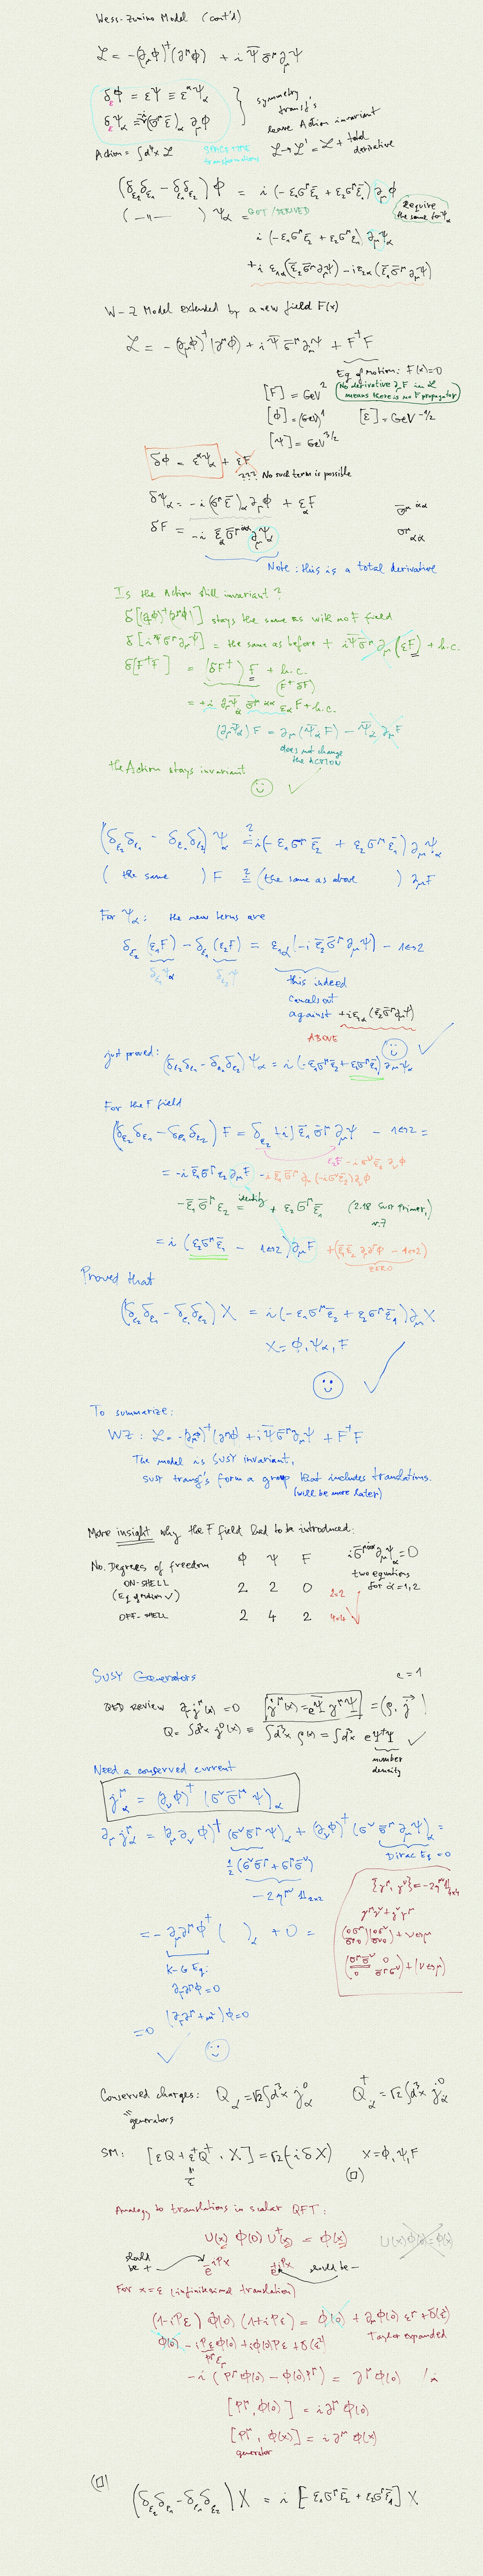 Wess-Zumino Model (cont'd)
ℒ = -(∂_μ φ)^† (∂^μ φ) + i ψ̄ σ̄^μ ∂_μ ψ
δ_ε φ = εψ ≡ ε^α ψ_α
δ_ε ψ_α = -i(σ^μ ε̄)_α ∂_μ φ
symmetry transf's leave Action invariant
Action = ∫d⁴x ℒ
SPACETIME transformations
ℒ → ℒ' = ℒ + total derivative
(δ_ε2 δ_ε1 - δ_ε1 δ_ε2) φ = i(-ε₁σ^μ ε̄₂ + ε₂σ^μ ε̄₁) ∂_μ φ
Require the same for ψ_α
( -"- ) ψ_α = GOT/DERIVED
i(-ε₁σ^μ ε̄₂ + ε₂σ^μ ε̄₁) ∂_μ ψ_α
+i ε₁α(ε̄₂ σ̄^μ ∂_μ ψ) - i ε₂α(ε̄₁ σ̄^μ ∂_μ ψ)
W-Z Model extended by a new field F(x)
ℒ = -(∂_μ φ)^†(∂^μ φ) + i ψ̄ σ̄^μ ∂_μ ψ + F^†F
Eq of motion: F(x)=0
[F] = GeV²
(No derivative ∂_μ F in ℒ means there is no F propagator)
[φ] = (GeV)¹ [ε] = GeV^{-1/2}
[ψ] = GeV^{3/2}
δφ = ε^α ψ_α + εF
??? No such term is possible
δψ_α = -i(σ^μ ε̄)_α ∂_μ φ + ε_α F
σ̄^{μ α̇α}
δF = -i ε̄_α̇ σ̄^{μ α̇α} ∂_μ ψ_α
σ^μ_{αα̇}
Note: this is a total derivative
Is the Action still invariant?
δ[(∂φ)^†(∂^μ φ)] stays the same as with no F field
δ[i ψ̄ σ̄^μ ∂_μ ψ] = the same as before + i ψ̄ σ̄^μ ∂_μ (εF) + h.c.
δ[F^†F] = (δF^†) F + h.c.
(F^† δF)
= +i ∂_μ ψ̄_α̇ σ̄^{μ α̇α} ε_α F + h.c.
(∂_μ ψ̄_α̇) F = ∂_μ(ψ̄_α̇ F) - ψ̄_α̇ ∂_μ F
does not change the ACTION
the Action stays invariant ☺ ✓
(δ_ε2 δ_ε1 - δ_ε1 δ_ε2) ψ_α ≟ i(-ε₁σ^μ ε̄₂ + ε₂σ^μ ε̄₁) ∂_μ ψ_α
( the same ) F ≟ (the same as above ) ∂_μ F
For ψ_α: the new terms are
δ_ε2 (ε₁F) - δ_ε1 (ε₂F) = ε₁α(-i ε̄₂ σ̄^μ ∂_μ ψ) - 1↔2
δ_ε1 ψ_α δ_ε2 ψ
this indeed cancels out against +i ε₁α (ε̄₂ σ̄^μ ∂_μ ψ)
ABOVE ☺ ✓
just proved: (δ_ε2 δ_ε1 - δ_ε1 δ_ε2) ψ_α = i(-ε₁σ^μ ε̄₂ + ε₂σ^μ ε̄₁) ∂_μ ψ_α
For the F field
(δ_ε2 δ_ε1 - δ_ε1 δ_ε2) F = δ_ε2 (-i) ε̄₁ σ̄^μ ∂_μ ψ - 1↔2 =
ε₂F - iσ^ν ε̄₂ ∂_ν φ
= -i ε̄₁ σ̄^μ ε₂ ∂_μ F - i ε̄₁ σ̄^μ ∂_μ (-iσ^ν ε̄₂) ∂_ν φ
-ε̄₁ σ̄^μ ε₂ = identity + ε₂ σ^μ ε̄₁ (2.18 SUSY Primer, v.7)
= i(ε₂σ^μ ε̄₁ - 1↔2) ∂_μ F + (ε̄₁ ε̄₂ ∂_μ ∂^μ φ - 1↔2)
ZERO
Proved that
(δ_ε2 δ_ε1 - δ_ε1 δ_ε2) X = i(-ε₁σ^μ ε̄₂ + ε₂σ^μ ε̄₁) ∂_μ X
X = φ, ψ_α, F
☺ ✓
To summarize:
WZ: ℒ = -(∂_μ φ)^†(∂^μ φ) + i ψ̄ σ̄^μ ∂_μ ψ + F^†F
The model is SUSY invariant,
SUSY transf's form a group that includes translations.
(will be more later)
More insight why the F field had to be introduced:
No. Degrees of freedom φ ψ F
i σ̄^{μ α̇α} ∂_μ ψ_α = 0
two equations for α̇ = 1,2
ON-SHELL (Eq of motion ✓) 2 2 0 2=2
OFF-SHELL 2 4 2 4=4 ✓
SUSY Generators
e = 1
QED review ∂_μ j^μ(x) = 0 j^μ(x) = e Ψ̄ γ^μ Ψ = (ρ, j⃗)
Q = ∫d³x j⁰(x) = ∫d³x ρ(x) = ∫d³x e Ψ^†Ψ ✓
number density
Need a conserved current
j^μ_α = (∂_ν φ)^† (σ^ν σ̄^μ ψ)_α
∂_μ j^μ_α = (∂_μ ∂_ν φ)^† (σ^ν σ̄^μ ψ)_α + (∂_ν φ)^† (σ^ν σ̄^μ ∂_μ ψ)_α =
Dirac Eq = 0
½(σ^ν σ̄^μ + σ^μ σ̄^ν)
-2η^{μν} 𝟙_{2x2}
{γ^μ, γ^ν} = -2η^{μν} 𝟙_{4x4}
γ^μ γ^ν + γ^ν γ^μ
(0 σ^μ / σ̄^μ 0)(0 σ^ν / σ̄^ν 0) + ν↔μ
(σ^μ σ̄^ν 0 / 0 σ̄^μ σ^ν) + (ν↔μ)
= -∂_μ ∂^μ φ^† ( )_α + 0 =
K-G Eq.
∂_μ ∂^μ φ = 0
(∂_μ ∂^μ + m²) φ = 0
= 0
✓ ☺
Conserved charges: Q_α = √2 ∫d³x j⁰_α Q^†_α̇ = √2 ∫d³x j⁰_α̇
generators
SM: [εQ + ε^†Q^†, X] = √2 (-i δX) X = φ, ψ, F
ε̄
(□)
Analogy to translations in scalar QFT:
U(x) φ(0) U^†(x) = φ(x)
U(x) φ(0) = φ(x)
should be + e^{-iPx} e^{iPx} should be -
For x = ε (infinitesimal translation)
(1-iPε) φ(0) (1+iPε) = φ(0) + ∂_μ φ(0) ε^μ + O(ε²)
Taylor expanded
φ(0) - iPε φ(0) + iφ(0)Pε + O(ε²)
P^μ ε_μ
-i (P^μ φ(0) - φ(0)P^μ) = ∂^μ φ(0) /·i
[P^μ, φ(0)] = i∂^μ φ(0)
[P^μ, φ(x)] = i∂^μ φ(x)
generator
(□) (δ_ε2 δ_ε1 - δ_ε1 δ_ε2) X = i[-ε₁σ^μ ε̄₂ + ε₂σ^μ ε̄₁] X